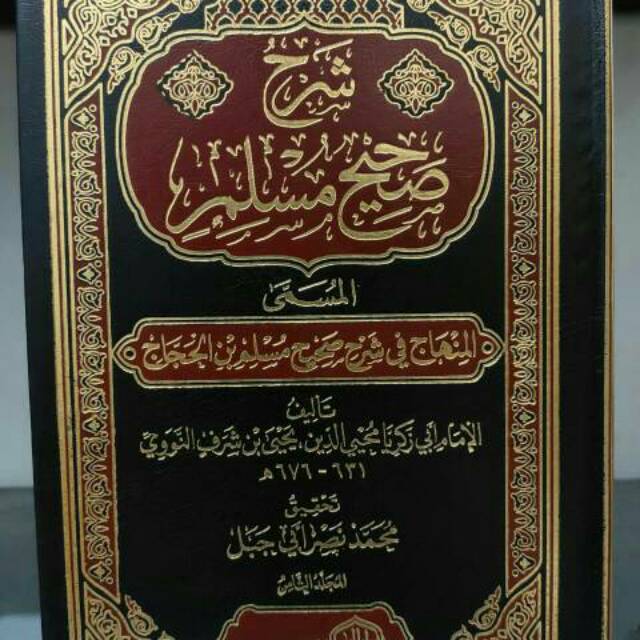 شَرْحُ
صَحِيحِ مُسْلِمٍ
المُسَمَّى
المِنْهَاج فِي شَرْحِ صَحِيحِ مُسْلِم بْنِ الحَجَّاج
تَأليفُ
الإمَام أبي زكَرِيَّا مُحْيِي الدِّين يَحْيَى بْن شَرَفِ النَّوَوِي
٦٣١ - ٦٧٦ هـ
تَحْقِيقُ
مُحَمَّد نَصْر أبي جَبَل
المجلد